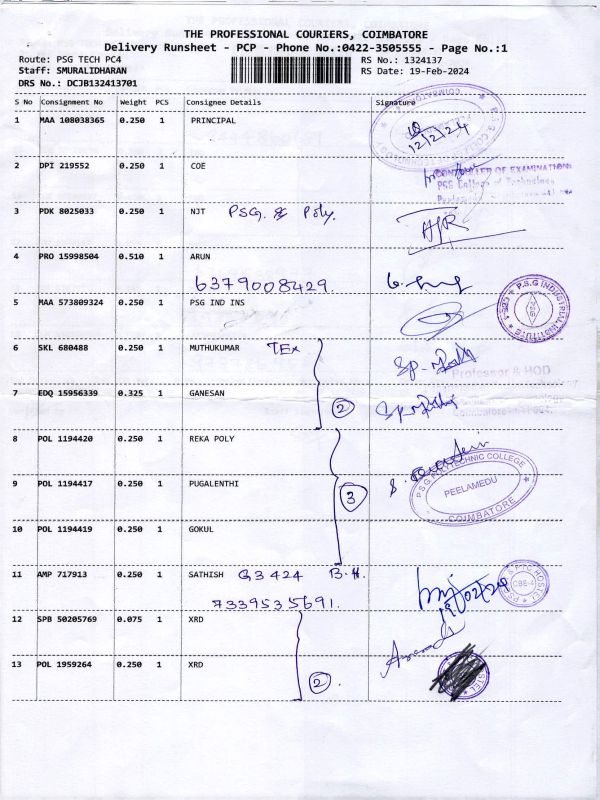 THE PROFESSIONAL COURIERS, COIMBATORE
Delivery Runsheet - PCP - Phone No.:0422-3505555 - Page No.:1
Route: PSG TECH PC4 RS No.: 1324137
Staff: SMURALIDHARAN RS Date: 19-Feb-2024
DRS No.: DCJB132413701
S No Consignment No Weight PCS Consignee Details Signature
1 MAA 108038365 0.250 1 PRINCIPAL
12/2/24
2 DPI 219552 0.250 1 COE
CONTROLLER OF EXAMINATIONS
PSG College of Technology
3 PDK 8025033 0.250 1 NJT PSG & Poly.
4 PRO 15998504 0.510 1 ARUN
6379008429.
5 MAA 573809324 0.250 1 PSG IND INS
P.S.G INDUSTRIAL INSTITUTE
6 SKL 680488 0.250 1 MUTHUKUMAR TEX
Professor & HOD
7 EDQ 15956339 0.325 1 GANESAN
2
8 POL 1194420 0.250 1 REKA POLY
PSG POLYTECHNIC COLLEGE
PEELAMEDU
COIMBATORE
9 POL 1194417 0.250 1 PUGALENTHI
3
10 POL 1194419 0.250 1 GOKUL
11 AMP 717913 0.250 1 SATHISH G3 424 B.H.
7339535691.
CBE-4
19/02/24
12 SPB 50205769 0.075 1 XRD
13 POL 1959264 0.250 1 XRD
2.